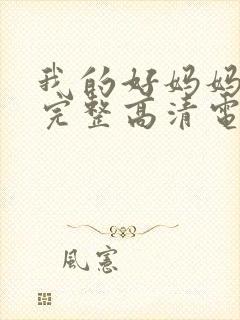 我的好妈妈
完整高清电
風憲